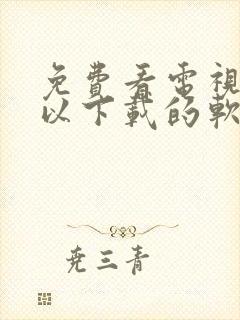 免費看電視
以下載的軟
堯三青